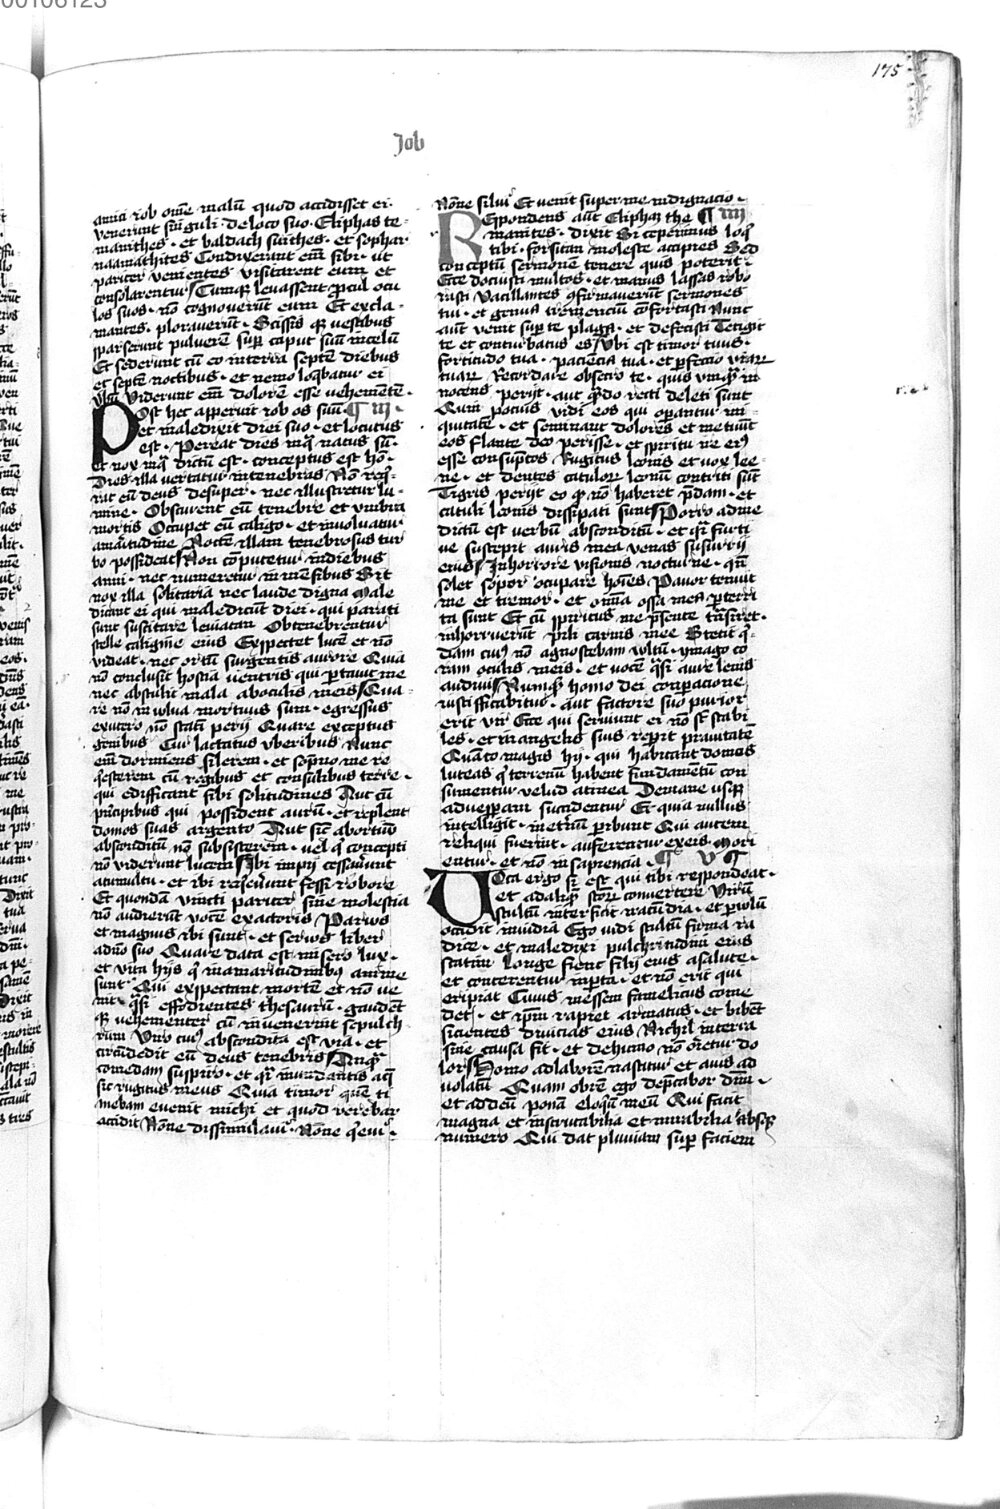 175
Job
amici iob om̄e malū quod accidisset ei·
venerunt singuli de loco suo· Eliphas te-
manithes· et baldach suithes· et sophar
naamathites Condixerunt em̄ sibi· ut
pariter venientes visitarent eum et
consolarentur Cumqꝫ levassent procul ocu
los suos· nō cognoverūt eum Et excla-
mantes· ploraverūt· Scissis qꝫ vestibus
sparserunt pulverē sup̄ caput suū in celū
Et sederunt cū eo in terra septē diebus
et septē noctibus· et nemo loq̄batur ei
v̄bū viderunt em̄ dolorē esse vehementē·
Post hec apperuit iob os suū· ¶ III·
et maledixit diei suo· et locutus
est· Pereat dies in q̄ natus sū·
et nox in q̄ dictū est· conceptus est hō·
Dies illa vertatur in tenebras Nō req̄-
rat eū deus desuper· nec illustretur lu-
mine· Obscurent eū tenebre et umbra
mortis Occupet eū caligo· et involvatur
amaritudine Noctē illam tenebrosus tur
bo possideat Non cōputetur in diebus
anni· nec numeretur in mēsibus Sit
nox illa solitaria nec laude digna Male
dicant ei qui maledicūt diei· qui parati
sunt suscitare leviatan Obtenebrentur
stelle caligine eius Exspectet lucē et nō
videat· nec ortū surgentis aurore Quia
nō conclusit hostia ventris qui p̄tavit me
nec abstulit mala ab oculis meis Qua-
re nō in wlva mortuus sum· egressus
ex utero nō statī perij Quare exceptus
genibus Cur lactatus uberibus Nunc
em̄ dormiens silerem· et sop̄no meo re
q̄escerem cū regibus et consulibus terre·
qui edificant sibi solitudines Aut cū
principibus qui possident aurū· et replent
domos suas argento Aut sic̄ abortivū
absconditū nō subsisterem· vel q̄ concepti
nō viderunt lucem Ibi impij cessaverūt
a tumultu· et ibi req̄everūt fessi robore
Et quondā vincti pariter sine molestia
nō audierūt vocē exactoris Parvos
et magnus ibi sunt· et servos liber
a dn̄o suo Quare data est misero lux·
et vita hijs q̄ in amaritudinibꝫ anime
sunt· Qui exspectant mortē et nō ve
nit· q̄si effodientes thesaurū· gaudēt
qꝫ vehementer cū invenerint sepulch
rum Viro cuiꝰ abscondita est via· et
circūdedit eū deus tenebris Anteq̄
comedam suspiro· et q̄si inundantis aq̄
sic rugitus meus Quia timor quē ti
mebam evenit michi et quod verebar
accidit Nōne dissimulavi· Nōne q̄evi·
Nōne silui Et venit super me indignacio·
Respondens aūt Eliphaz the ¶ IIII
manites· dixit Si ceperimus loq̄
tibi· forsitan moleste accipies Sed
conceptū sermonē tenere quis poterit·
Ecce docuisti multos· et manus lassas robo
rasti Vacillantes ꝯfirmaverūt sermones
tui· et genua trementiū cōfortasti Nunc
aūt venit sup̄ te plaga· et defecisti Tetigit
te et conturbatus es Ubi est timor tuus·
fortitudo tua· paciēcia tua· et p̄fectio viarꝫ
tuarꝫ Recordare obsecro te· quis umq̄ in
nocens perijt· aut q̄ndo recti deleti sunt
Quin pocius vidi eos qui op̄antur ini-
quitatē· et seminant dolores et metunt
eos flante deo perisse· et spiritu ire eiꝰ
esse consūptos Rugitus leonis et vox lee-
ne· et dentes catulorꝫ leonū contriti sūt
Tigris perijt eo qꝫ nō haberet p̄dam· et
catuli leonis dissipati sunt Porro ad me
dictū est verbū absconditū· et q̄si furti
ve suscepit auris mea venas susurrij
eius In horrore visionis nocturne· qn̄
solet sopor occupare hoīes Pavor tenuit
me et tremor· et om̄ia ossa mea p̄terri
ta sunt Et cū spiritus me p̄sente trāsiret·
inhorruerūt pili carnis mee Stetit q̄-
dam cuiꝰ nō agnoscebam wltū· ymago co
ram oculis meis· et vocē q̄si aure lenis
audivi Numq̄ homo dei conp̄acione
iustificabitur· aut factore suo purior
erit vir Ecce qui serviunt ei nō st̄ stabi
les· et in angelis suis rep̄it pravitatē
Quāto magis hij· qui habitant domos
luteas q̄ terrenū habent fundamentū con
sumentur velud a tinea De mane usqꝫ
ad vesperam succidentur Et quia nullus
intelligit· in eternū p̄ibunt Qui autem
reliqui fuerint· auferentur ex eis· Mori
entur· et nō in sapiencia· ¶ V ¶
Voca ergo si est qui tibi respondeat·
et ad aliqꝫ sctōꝝ convertere Virū
stultū interficit iracūdia· et p̄vulū
occidit invidia Ego vidi stultū firma ra
dice· et maledixi pulchritudini eius
statim Longe fient filij eius a salute·
et conterentur in porta· et nō erit qui
eripiat Cuius messem famelicus come
det· et ip̄m rapiet armatus· et bibēt
sicientes divicias eius Nichil in terra
sine causa fit· et de humo nō orietur do
lor Homo ad laborē nascitur et avis ad
volatū Quam obrē ego dep̄cabor dn̄m·
et ad deū ponā eloqū meū Qui facit
magna et inscrutabilia et mirabilia absqꝫ
numero Qui dat pluviam sup̄ faciem